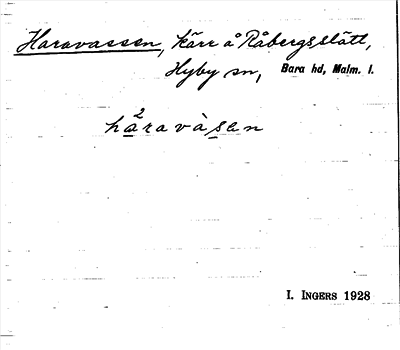 Haravassen, kärr å Råbergsslätt,
Hyby sn, Bara hd, Malm. l.
hå²ravàsen
I. INGERS 1928